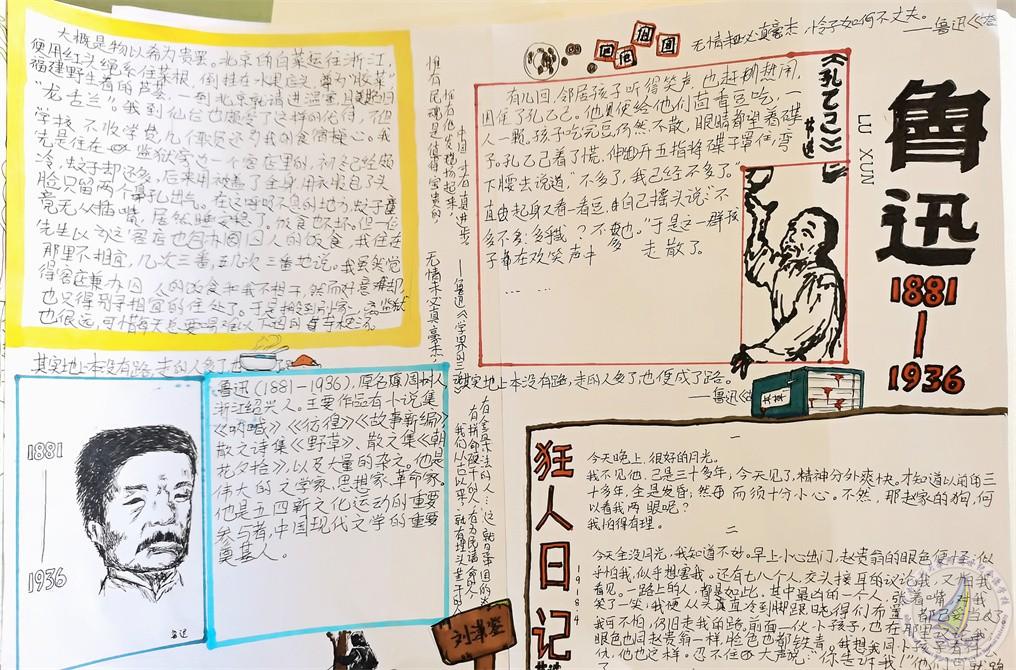 大概是物以希为贵罢。北京的白菜运往浙江,
便用红头绳系住菜根,倒挂在水果店头,尊为“胶菜”
福建野生着的芦荟,一到北京就请进温室,且美其名曰
“龙舌兰”。我到仙台也颇受了这样的优待,不但
学校不收学费,几个职员还为我的食宿操心。我
先是住在监狱旁边一个客店里的,初冬已经颇
冷,蚊子却还多,后来用被盖了全身,用衣服包了头
脸,只留两个鼻孔出气。在这呼吸不息的地方,蚊子竟
竟无从插嘴,居然睡安稳了。饭食也不坏。但一位
先生以为这客店也包办囚人的饭食,我住在
那里不相宜,几次三番,几次三番地说。我虽然觉
得客店兼办囚人的饭食和我不相干,然而好意难却,
也只得别寻相宜的住处了。于是搬到别家,离监狱
也很远,可惜每天总要喝难以下咽的芋梗汤。
无情未必真豪杰,怜子如何不丈夫。
——鲁迅《答
惟有民魂是值得宝贵的,
惟有他发扬起来,
中国才有真进步。
——鲁迅《学界的三魂》
无情未必真豪杰
《孔乙己》
鲁迅
有几回,邻居孩子听得笑声,也赶热闹,
围住了孔乙己。他便给他们茴香豆吃,一
人一颗。孩子吃完豆,仍然不散,眼睛都望着碟
子。孔乙己着了慌,伸开五指将碟子罩住,弯
下腰去说道“不多了,我已经不多了。”
直起身又看一看豆,自己摇头说:“不
多不多!多乎哉?不多也。”于是这一群孩
子都在欢笑声中走散了。
... ...
LU XUN
鲁迅
1881
1936
其实地上本没有路,走的人多了也
其实地上本没有路,走的人多了也便成了路。
——鲁迅《故
1881
1936
鲁迅
鲁迅(1881-1936),原名周树人
浙江绍兴人。主要作品有小说集
《呐喊》《彷徨》《故事新编》
散文诗集《野草》,散文集《朝
花夕拾》,以及大量的杂文。他是
伟大的文学家、思想家、革命家。
他是五四新文化运动的重要
参与者,中国现代文学的重要
奠基人。
我们从古以来,就有埋头苦干的人
有拼命硬干的人,有为民请命的人
刘泽
狂人日记
鲁迅
1918
一
今天晚上,很好的月光。
我不见他,已是三十多年,今天见了,精神分外爽快。才知道以前的三
十多年,全是发昏;然而须十分小心。不然,那赵家的狗,何
以看我两眼呢?
我怕得有理。
二
今天全没月光,我知道不妙。早上小心出门,赵贵翁的眼色便怪:似
乎怕我,似乎想害我。还有七八个人,交头接耳的议论我,又怕我
看见。一路上的人,都是如此。其中最凶的一个人,张着嘴,对我
笑了一笑,我便从头直冷到脚跟,晓得他们布置,都已妥当了。
我可不怕,仍旧走我的路。前面一伙小孩子,也在那里
眼色也同赵贵翁一样,脸色也都铁青。我想我同小孩子
仇,他也这样。忍不住大声说,“你告诉我!”他们